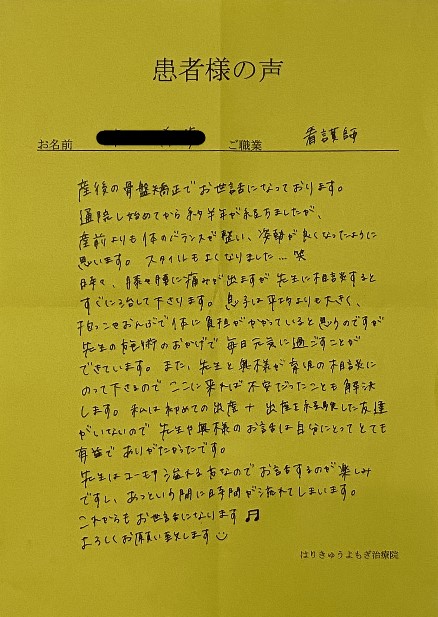 患者様の声
お名前 ご職業 看護師
産後の骨盤矯正でお世話になっております。
通院し始めてから約半年が経ちましたが、
産前よりも体のバランスが整い、姿勢が良くなったように
思います。スタイルもよくなりました…笑
時々、膝や腰に痛みが出ますが先生に相談すると
すぐに治して下さります。息子は平均よりも大きく、
抱っこやおんぶで体に負担がかかっていると思うのですが
先生の施術のおかげで毎日元気に過ごすことが
できています。また、先生と奥様が育児の相談に
のって下さるのでここに来れば不安だったことも解決
します。私は初めての出産+出産を経験した友達
がいないので先生や奥様のお話は自分にとってとても
有益でありがたかったです。
先生はユーモア溢れる方なのでお話するのが楽しみ
ですし、あっという間に時間が流れてしまいます。
これからもお世話になります♫
よろしくお願い致します☺
はりきゅうよもぎ治療院